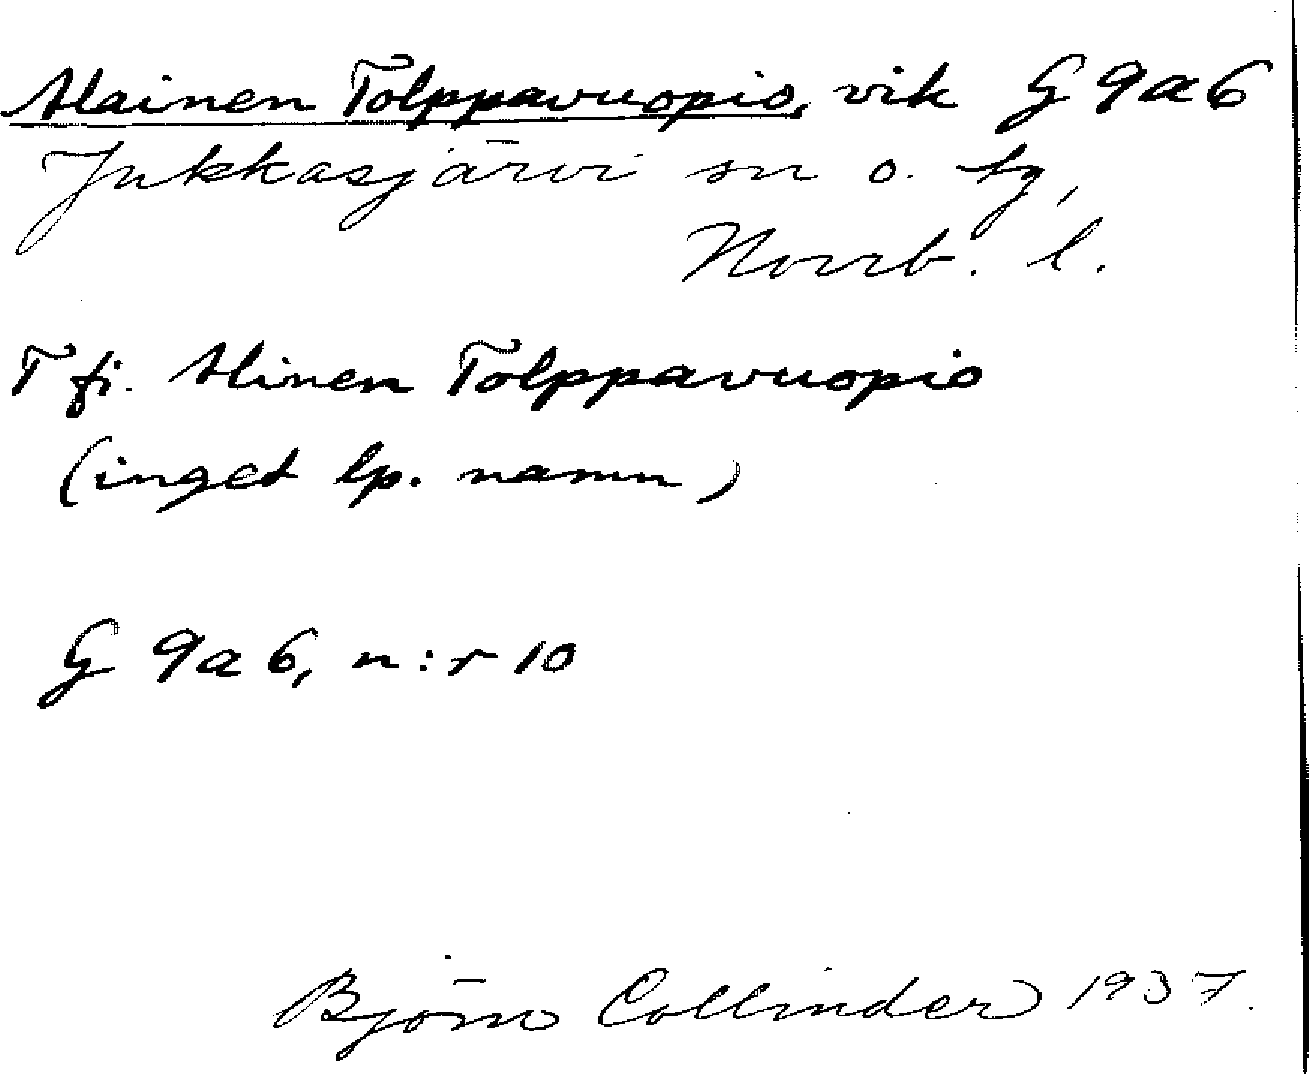 Alainen Tolppavuopio, vik G 9a6
Jukkasjärvi sn o. tg,
Norrb. l.
T fi. Alinen Tolppavuopio
(inget lp. namn)
G 9a6, n:r 10
Björn Collinder 1937.